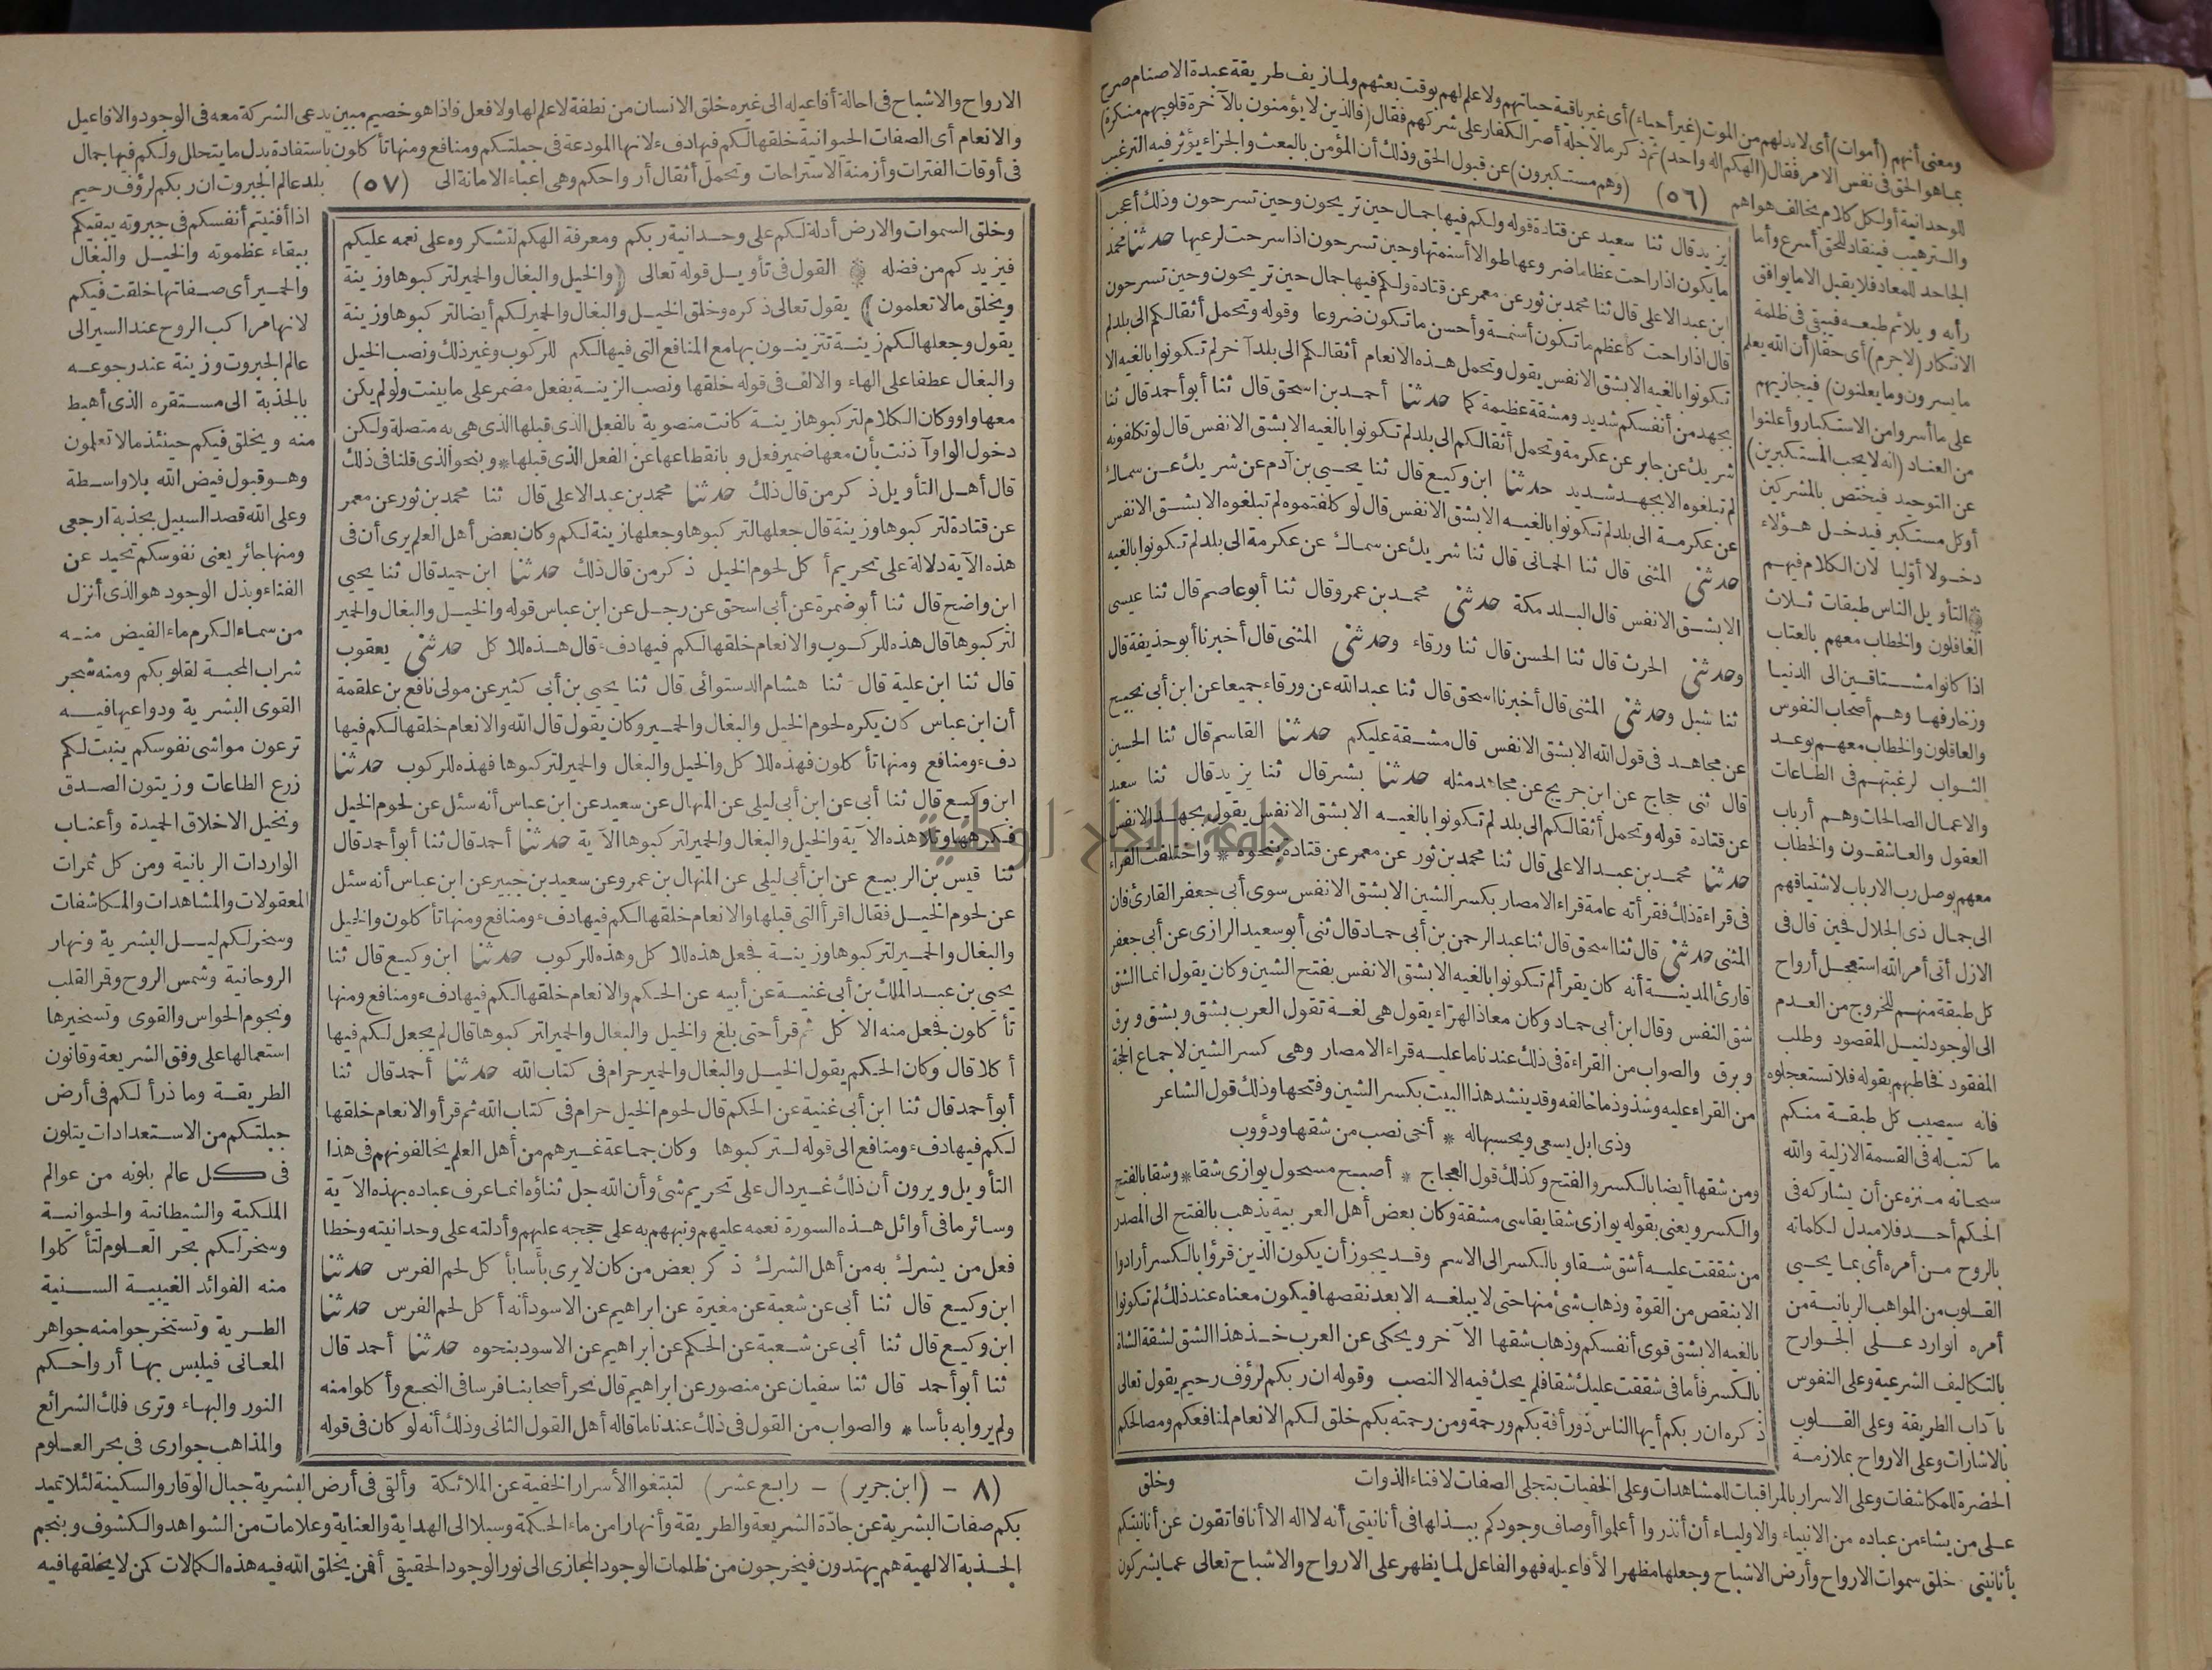 ومعنى أنهم (أموات) أى لا بد لهم من الموت (غير أحياء) أى غير باقية حياتهم ولا علم لهم بوقت بعثهم ولما زيف طريقة عبدة الاصنام صرح
بما هو الحق فى نفس الامر فقال (الهكم اله واحد) ثم ذكر ما لاجله أصر الكفار على شركهم فقال (فالذين لا يؤمنون بالآخرة قلوبهم منكرة)
للوحدانية أو لكل كلام يخالف هواهم (٥٦) (وهم مستكبرون) عن قبول الحق وذلك أن المؤمن بالبعث والجزاء يؤثر فيه الترغيب
والترهيب فينقاد للحق أسرع وأما
الجاحد للمعاد فلا يقبل الا ما يوافق
رأيه ويلائم طبعه فيبقى فى ظلمة
الانكار (لا جرم) أى حقا (أن الله يعلم
ما يسرون وما يعلنون) فيجازيهم
على ما أسروا من الاستكبار وأعلنوا
من العناد (انه لا يحب المستكبرين)
عن التوحيد فيختص بالمشركين
أو كل مستكبر فيدخل هؤلاء
دخولا أوليا لان الكلام فيهم
التأويل الناس طبقات ثلاث
الغافلون والخطاب معهم بالعتاب
اذا كانوا مشتاقين الى الدنيا
وزخارفها وهم أصحاب النفوس
والعاقلون والخطاب معهم بوعد
الثواب لرغبتهم فى الطاعات
والاعمال الصالحات وهم أرباب
العقول والعاشقون والخطاب
معهم بوصل رب الارباب لاشتياقهم
الى جمال ذى الجلال فحين قال فى
الازل أتى أمر الله استعجل أرواح
كل طبقة منهم للخروج من العدم
الى الوجود لنيل المقصود وطلب
المفقود فخاطبهم بقوله فلا تستعجلوه
فانه سيصيب كل طبقة منكم
ما كتب له فى القسمة الازلية والله
سبحانه منزه عن أن يشاركه فى
الحكم أحد فلا مبدل لكلماته
بالروح من أمره أى بما يحيى
القلوب من المواهب الربانية من
أمره الوارد على الجوارح
بالتكاليف الشرعية وعلى النفوس
بآداب الطريقة وعلى القلوب
بالاشارات وعلى الارواح بملازمة
الحضرة للمكاشفات وعلى الاسرار بالمراقبات للمشاهدات وعلى الخفيات بتجلى الصفات لافناء الذوات
على من يشاء من عباده من الانبياء والاولياء أن أنذروا أعلموا أوصاف وجودكم ببذلها فى أنانيتى أنه لا اله الا أنا فاتقون عن أنانيتكم
بأنانيتى خلق سموات الارواح وأرض الاشباح وجعلها مظهرا لأفاعيله فهو الفاعل لما يظهر على الارواح والاشباح تعالى عما يشركون
يزيد قال ثنا سعيد عن قتادة قوله ولكم فيها جمال حين تريحون وحين تسرحون وذلك أعجب
ما يكون اذا راحت عظاما ضروعها طوالا أسنمتها وحين تسرحون اذا سرحت لرعيها حدثنا محمد
ابن عبد الاعلى قال ثنا محمد بن ثور عن معمر عن قتادة ولكم فيها جمال حين تريحون وحين تسرحون
قال اذا راحت كأعظم ما تكون أسنمة وأحسن ما تكون ضروعا وقوله وتحمل أثقالكم الى بلد لم
تكونوا بالغيه الا بشق الانفس يقول وتحمل هذه الانعام أثقالكم الى بلد آخر لم تكونوا بالغيه الا
بجهد من أنفسكم شديد ومشقة عظيمة كما حدثنا أحمد بن اسحق قال ثنا أبو أحمد قال ثنا
شريك عن جابر عن عكرمة وتحمل أثقالكم الى بلد لم تكونوا بالغيه الا بشق الانفس قال لو تكلفونه
لم تبلغوه الا بجهد شديد حدثنا ابن وكيع قال ثنا يحيى بن آدم عن شريك عن سماك
عن عكرمة الى بلد لم تكونوا بالغيه الا بشق الانفس قال لو كلفتموه لم تبلغوه الا بشق الانفس
حدثنى المثنى قال ثنا الحمانى قال ثنا شريك عن سماك عن عكرمة الى بلد لم تكونوا بالغيه
الا بشق الانفس قال البلد مكة حدثنى محمد بن عمرو قال ثنا أبو عاصم قال ثنا عيسى
وحدثنى الحرث قال ثنا الحسن قال ثنا ورقاء وحدثنى المثنى قال أخبرنا أبو حذيفة قال
ثنا شبل وحدثنى المثنى قال أخبرنا اسحق قال ثنا عبد الله عن ورقاء جميعا عن ابن أبى نجيح
عن مجاهد فى قول الله الا بشق الانفس قال مشقة عليكم حدثنا القاسم قال ثنا الحسين
قال ثنى حجاج عن ابن جريج عن مجاهد مثله حدثنا بشر قال ثنا يزيد قال ثنا سعيد
عن قتادة قوله وتحمل أثقالكم الى بلد لم تكونوا بالغيه الا بشق الانفس يقول بجهد الانفس
حدثنا محمد بن عبد الاعلى قال ثنا محمد بن ثور عن معمر عن قتادة بنحوه * واختلفت القراء
فى قراءة ذلك فقرأته عامة قراء الامصار بكسر الشين الا بشق الانفس سوى أبى جعفر القارئ فان
المثنى حدثنى قال ثنا اسحق قال ثنا عبد الرحمن بن أبى حماد قال ثنى أبو سعيد الرازى عن أبى جعفر
قارئ المدينة أنه كان يقرأ لم تكونوا بالغيه الا بشق الانفس بفتح الشين وكان يقول انما الشق
شق النفس وقال ابن أبى حماد وكان معاذ الهراء يقول هى لغة تقول العرب بشق وبشق وبرق
وبرق والصواب من القراءة فى ذلك عندنا ما عليه قراء الامصار وهى كسر الشين لاجماع الحجة
من القراء عليه وشذوذ ما خالفه وقد ينشد هذا البيت بكسر الشين وفتحها وذلك قول الشاعر
وذى ابل يسعى ويحسبها له * أخى نصب من شقها ودؤوب
ومن شقها أيضا بالكسر والفتح وكذلك قول العجاج * أصبح مسحول يوازى شقا * وشقا بالفتح
والكسر ويعنى بقوله يوازى شقا يقاسى مشقة وكان بعض أهل العربية يذهب بالفتح الى المصدر
من شققت عليه أشق شقا وبالكسر الى الاسم وقد يجوز أن يكون الذين قرؤا بالكسر أرادوا
الا بنقص من القوة وذهاب شئ منها حتى لا يبلغه الا بعد نقصها فيكون معناه عند ذلك لم تكونوا
بالغيه الا بشق قوى أنفسكم وذهاب شقها الآخر ويحكى عن العرب خذ هذا الشق لشقة الشاة
بالكسر فأما فى شققت عليك شقا فلم يحك فيه الا النصب وقوله ان ربكم لرؤف رحيم يقول تعالى
ذكره ان ربكم أيها الناس ذو رأفة بكم ورحمة ومن رحمته بكم خلق لكم الانعام لمنافعكم ومصالحكم
وخلق
الارواح والاشباح فى احالة أفاعيله الى غيره خلق الانسان من نطفة لا علم لها ولا فعل فاذا هو خصيم مبين يدعى الشركة معه فى الوجود والافاعيل
والانعام أى الصفات الحيوانية خلقها لكم فيها دفء لانها المودعة فى جبلتكم ومنافع ومنها تأكلون باستفادة بدل ما يتحلل ولكم فيها جمال
فى أوقات الفترات وأزمنة الاستراحات وتحمل أثقال أرواحكم وهى اعباء الامانة الى (٥٧) بلد عالم الجبروت ان ربكم لرؤف رحيم
اذا أفنيتم أنفسكم فى جبروته يبقيكم
ببقاء عظموته والخيل والبغال
والحمير أى صفاتها خلقت فيكم
لانها مراكب الروح عند السير الى
عالم الجبروت وزينة عند رجوعه
بالجذبة الى مستقره الذى أهبط
منه ويخلق فيكم حينئذ ما لا تعلمون
وهو قبول فيض الله بلا واسطة
وعلى الله قصد السبيل بجذبة ارجعى
ومنها جائر يعنى نفوسكم تحيد عن
الفناء وبذل الوجود هو الذى أنزل
من سماء الكرم ماء الفيض منه
شراب المحبة لقلوبكم ومنه شجر
القوى البشرية ودواعيها فيه
ترعون مواشى نفوسكم ينبت لكم
زرع الطاعات وزيتون الصدق
ونخيل الاخلاق الحميدة وأعناب
الواردات الربانية ومن كل ثمرات
المعقولات والمشاهدات والمكاشفات
وسخر لكم ليل البشرية ونهار
الروحانية وشمس الروح وقمر القلب
ونجوم الحواس والقوى وتسخيرها
استعمالها على وفق الشريعة وقانون
الطريقة وما ذرأ لكم فى أرض
جبلتكم من الاستعدادات يتلون
فى كل عالم بلونه من عوالم
الملكية والشيطانية والحيوانية
وسخر لكم بحر العلوم لتأكلوا
منه الفوائد الغيبية السنية
الطرية وتستخرجوا منه جواهر
المعانى فيلبس بها أرواحكم
النور والبهاء وترى فلك الشرائع
والمذاهب جوارى فى بحر العلوم
وخلق السموات والارض أدلة لكم على وحدانية ربكم ومعرفة الهكم لتشكروه على نعمه عليكم
فيزيدكم من فضله ۞ القول فى تأويل قوله تعالى (والخيل والبغال والحمير لتركبوها وزينة
ويخلق ما لا تعلمون) يقول تعالى ذكره وخلق الخيل والبغال والحمير لكم أيضا لتركبوها وزينة
يقول وجعلها لكم زينة تتزينون بها مع المنافع التى فيها لكم للركوب وغير ذلك ونصب الخيل
والبغال عطفا على الهاء والالف فى قوله خلقها ونصب الزينة بفعل مضمر على ما بينت ولو لم يكن
معها واو وكان الكلام لتركبوها زينة كانت منصوبة بالفعل الذى قبلها الذى هى به متصلة ولكن
دخول الواو آذنت بأن معها ضمير فعل وبانقطاعها عن الفعل الذى قبلها * وبنحو الذى قلنا فى ذلك
قال أهل التأويل ذكر من قال ذلك حدثنا محمد بن عبد الاعلى قال ثنا محمد بن ثور عن معمر
عن قتادة لتركبوها وزينة قال جعلها لتركبوها وجعلها زينة لكم وكان بعض أهل العلم يرى أن فى
هذه الآية دلالة على تحريم أكل لحوم الخيل ذكر من قال ذلك حدثنا ابن حميد قال ثنا يحيى
ابن واضح قال ثنا أبو ضمرة عن أبى اسحق عن رجل عن ابن عباس قوله والخيل والبغال والحمير
لتركبوها قال هذه للركوب والانعام خلقها لكم فيها دفء قال هذه للاكل حدثنى يعقوب
قال ثنا ابن علية قال ثنا هشام الدستوائى قال ثنا يحيى بن أبى كثير عن مولى نافع بن علقمة
أن ابن عباس كان يكره لحوم الخيل والبغال والحمير وكان يقول قال الله والانعام خلقها لكم فيها
دفء ومنافع ومنها تأكلون فهذه للاكل والخيل والبغال والحمير لتركبوها فهذه للركوب حدثنا
ابن وكيع قال ثنا أبى عن ابن أبى ليلى عن المنهال عن سعيد عن ابن عباس أنه سئل عن لحوم الخيل
فكرهها وتلا هذه الآية والخيل والبغال والحمير لتركبوها الآية حدثنا أحمد قال ثنا أبو أحمد قال
ثنا قيس بن الربيع عن ابن أبى ليلى عن المنهال بن عمرو عن سعيد بن جبير عن ابن عباس أنه سئل
عن لحوم الخيل فقال اقرأ التى قبلها والانعام خلقها لكم فيها دفء ومنافع ومنها تأكلون والخيل
والبغال والحمير لتركبوها وزينة فجعل هذه للاكل وهذه للركوب حدثنا ابن وكيع قال ثنا
يحيى بن عبد الملك بن أبى غنية عن أبيه عن الحكم والانعام خلقها لكم فيها دفء ومنافع ومنها
تأكلون فجعل منه الاكل ثم قرأ حتى بلغ والخيل والبغال والحمير لتركبوها قال لم يجعل لكم فيها
أكلا قال وكان الحكم يقول الخيل والبغال والحمير حرام فى كتاب الله حدثنا أحمد قال ثنا
أبو أحمد قال ثنا ابن أبى غنية عن الحكم قال لحوم الخيل حرام فى كتاب الله ثم قرأ والانعام خلقها
لكم فيها دفء ومنافع الى قوله لتركبوها وكان جماعة غيرهم من أهل العلم يخالفونهم فى هذا
التأويل ويرون أن ذلك غير دال على تحريم شئ وأن الله جل ثناؤه انما عرف عباده بهذه الآية
وسائر ما فى أوائل هذه السورة نعمه عليهم ونبههم به على حججه عليهم وأدلته على وحدانيته وخطا
فعل من يشرك به من أهل الشرك ذكر بعض من كان لا يرى بأسا بأكل لحم الفرس حدثنا
ابن وكيع قال ثنا أبى عن شعبة عن مغيرة عن ابراهيم عن الاسود أنه أكل لحم الفرس حدثنا
ابن وكيع قال ثنا أبى عن شعبة عن الحكم عن ابراهيم عن الاسود بنحوه حدثنا أحمد قال
ثنا أبو أحمد قال ثنا سفيان عن منصور عن ابراهيم قال نحر أصحابنا فرسا فى النجع وأكلوا منه
ولم يروا به بأسا * والصواب من القول فى ذلك عندنا ما قاله أهل القول الثانى وذلك أنه لو كان فى قوله
(٨ - (ابن جرير) - رابع عشر) لتبتغوا الأسرار الخفية عن الملائكة وألقى فى أرض البشرية جبال الوقار والسكينة لئلا تميد
بكم صفات البشرية عن جادة الشريعة والطريقة وأنهارا من ماء الحكمة وسبلا الى الهداية والعناية وعلامات من الشواهد والكشوف وبنجم
الجذبة الالهية هم يهتدون فيخرجون من ظلمات الوجود المجازى الى نور الوجود الحقيقى أفمن يخلق الله فيه هذه الكمالات كمن لا يخلقها فيه
جامعة النجاح الوطنية